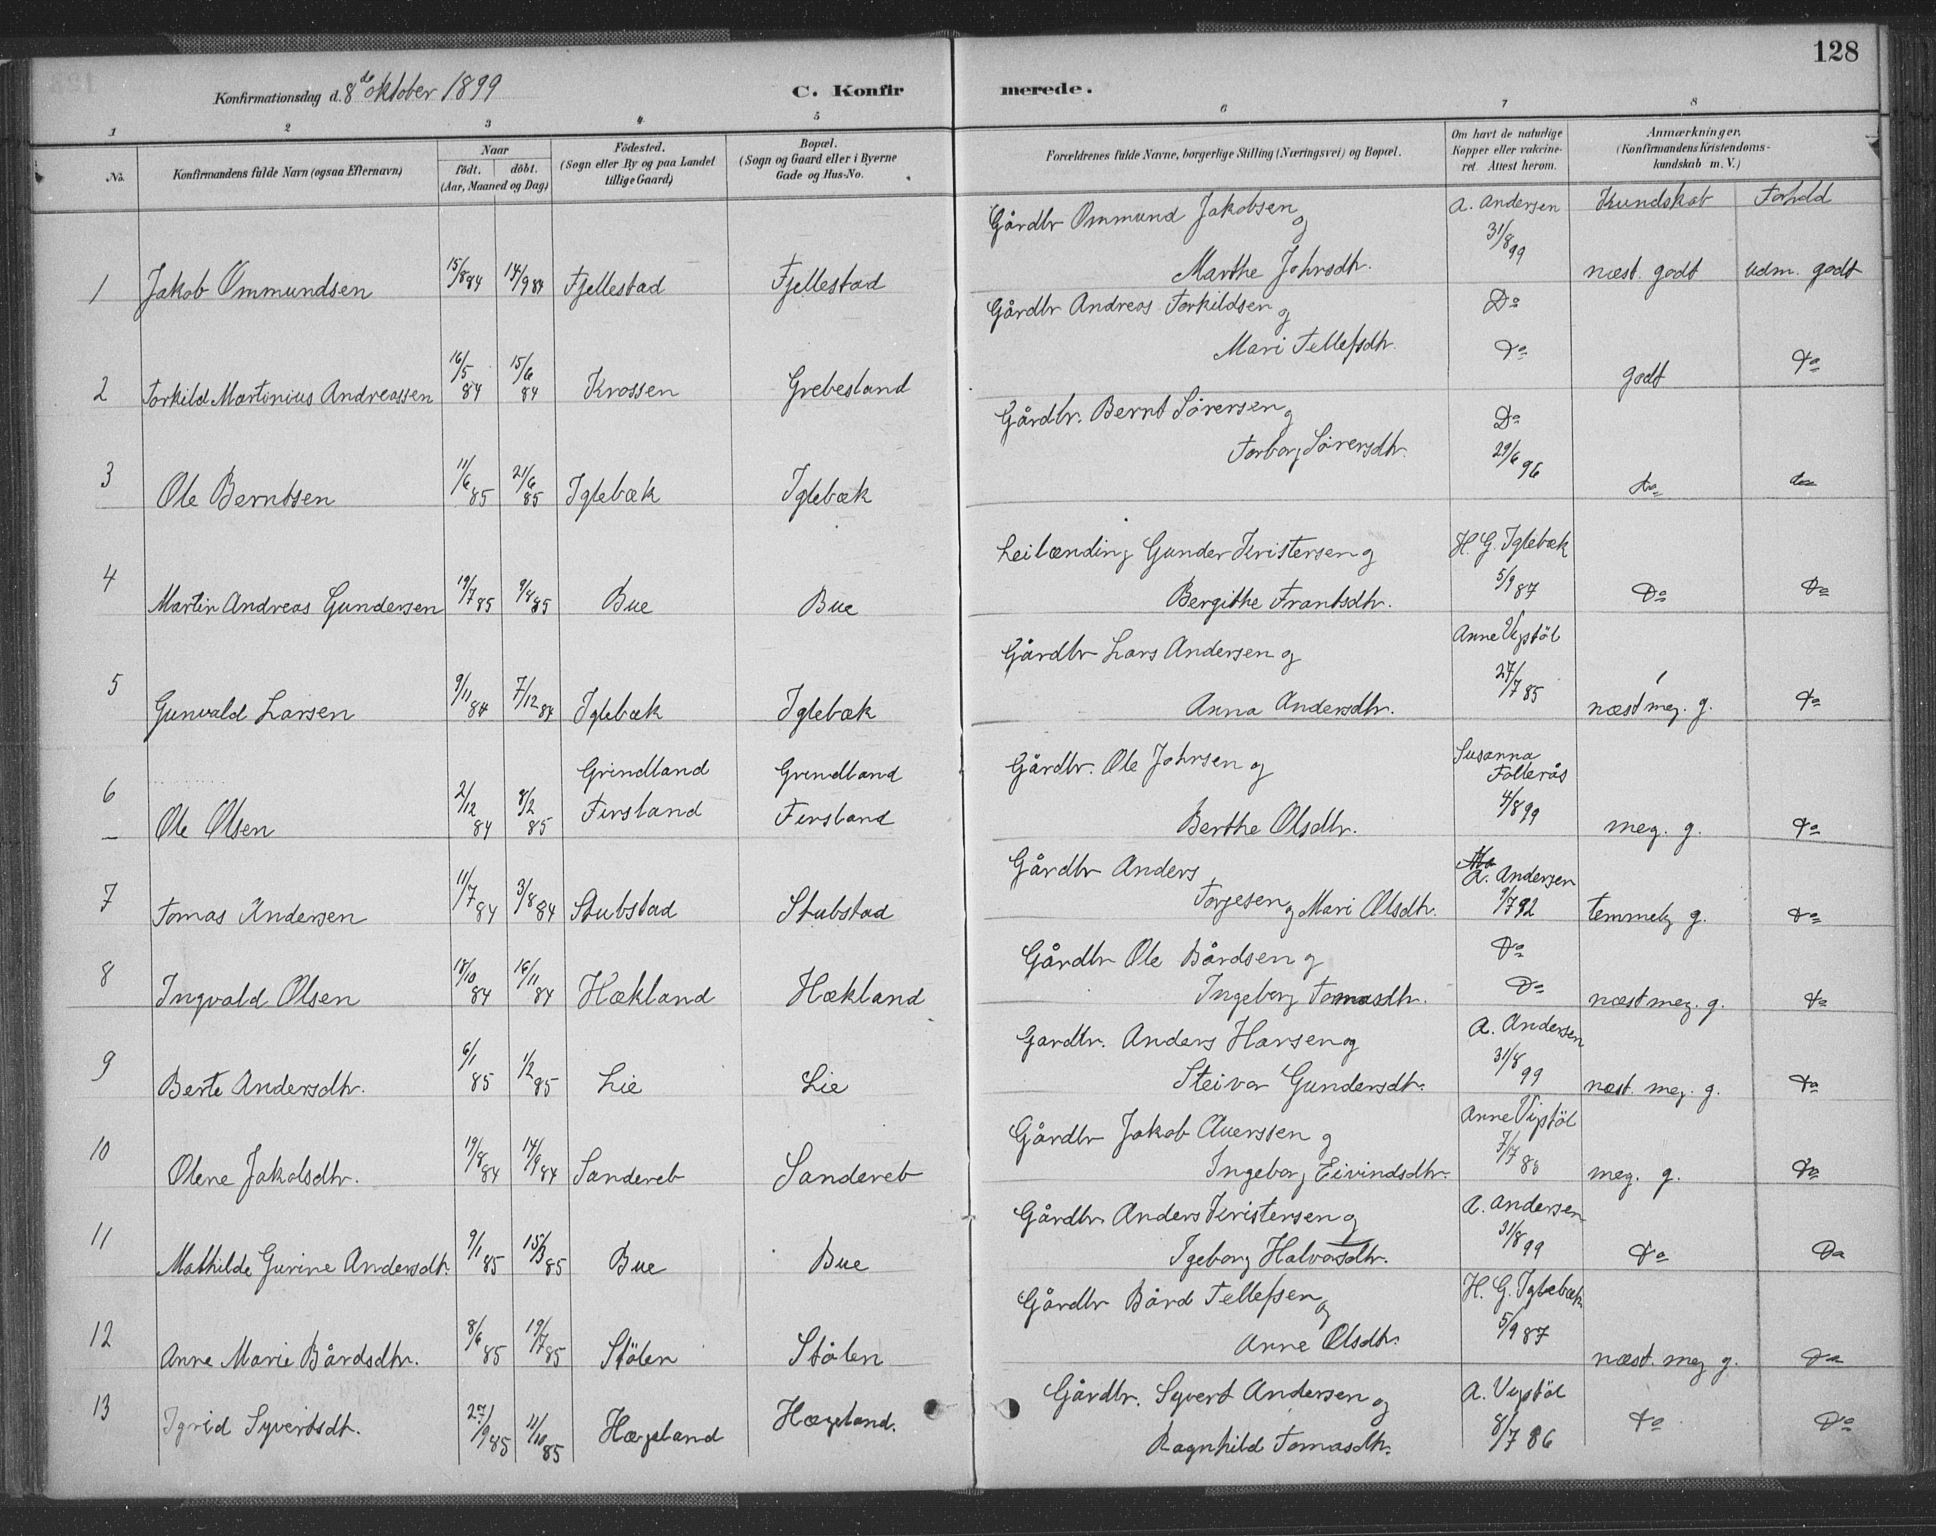 128
Konfirmationsdag d. 8de oktober 1899
C. Konfirmerede.
1 2 3 4 5 6 7 8
No.
Konfirmandens fulde Navn (ogsaa Efternavn)
Naar
födt. döbt.
(Aar, Maaned og Dag)
Födested.
(Sogn eller By og paa Landet
tillige Gaard)
Bopæl.
(Sogn og Gaard eller i Byerne
Gade og Hus-No.
Forældrenes fulde Navne, borgerlige Stilling (Næringsvei) og Bopæl.
Om havt de naturlige
Kopper eller vakcine-
ret. Attest herom.
Anmærkninger.
(Konfirmandens Kristendoms-
kundskab m. V.)
Kundskab Forhold
Gårdbr Ommund Jakobsen og A. Andersen
31/8 99
1 Jakob Ommundsen 15/8 84 14/9 84 Fjellestad Fjellestad Marthe Johnsdtr. næst. godt udm. godt
Gårdbr Andreas Torkildsen og Do
2 Torkild Martinius Andreassen 16/5 84 15/6 84 Krossen Grebesland Mari Tellefsdtr. Do godt Do
Gårdbr. Bernt Sörensen og Do
3 Ole Berntsen 11/6 85 21/6 85 Iglebæk Iglebæk Torborg Sörensdtr. 29/6 96 do do
Leilænding Gunder Kristensen og H. G. Iglebæk
4 Martin Andreas Gundersen 19/7 85 9/8 85 Bue Bue Bergithe Frantsdtr. 5/9 87 Do Do
Gårdbr Lars Andersen og Anne Vigstöl
5 Gunvald Larsen 9/11 84 7/12 84 Iglebæk Iglebæk Anna Andersdtr. 27/7 85 næst meg. g. Do
Grindland Grindland Gårdbr. Ole Johnsen og Susanna
Follerås
6 Ole Olsen 2/12 84 8/2 85 Finsland Finsland Berthe Olsdtr. 4/8 99 meg. g. Do
Gårdbr Anders A. Andersen
7 Tomas Andersen 11/7 84 3/8 84 Stubstad Stubstad Torjesen og Mari Olsdtr. 9/7 92 temmelig g. Do
Gårdbr Ole Bårdsen og Do
8 Ingvald Olsen 18/10 84 16/11 84 Hækland Hækland Ingeborg Tomasdtr. Do næst meg. g. Do
Gardbr. Anders Hansen og A. Andersen
9 Berte Andersdtr. 6/1 85 1/2 85 Lie Lie Steivor Gundersdtr. 31/8 99 næst. meg. g. Do
Gårdbr Jakob Auenssen og Anne Vigstöl
10 Olene Jakobsdtr. 19/8 84 14/9 84 Sandereb Sandereb Ingeborg Eivindsdtr. meg. g. Do
Gårdbr. Anders Kristensen og A. Andersen
11 Mathilde Gurine Andersdtr. 9/1 85 15/3 85 Bue Bue Igeborg Halvorsdtr. 31/8 99 Do Do
Gårdbr Bård Tellefsen og H. G. Iglebæk
12 Anne Marie Bårdsdtr. 8/6 85 19/7 85 Stölen Stölen Anne Olsdtr. 5/9 87 næst. meg g. Do
Gårdbr. Syvert Andersen og A. Vigstöl
13 Igrid Syvertsdt. 27/9 85 11/10 85 Hægeland Hægeland. Ragnhild Tomasdtr. 8/7 86 Do Do